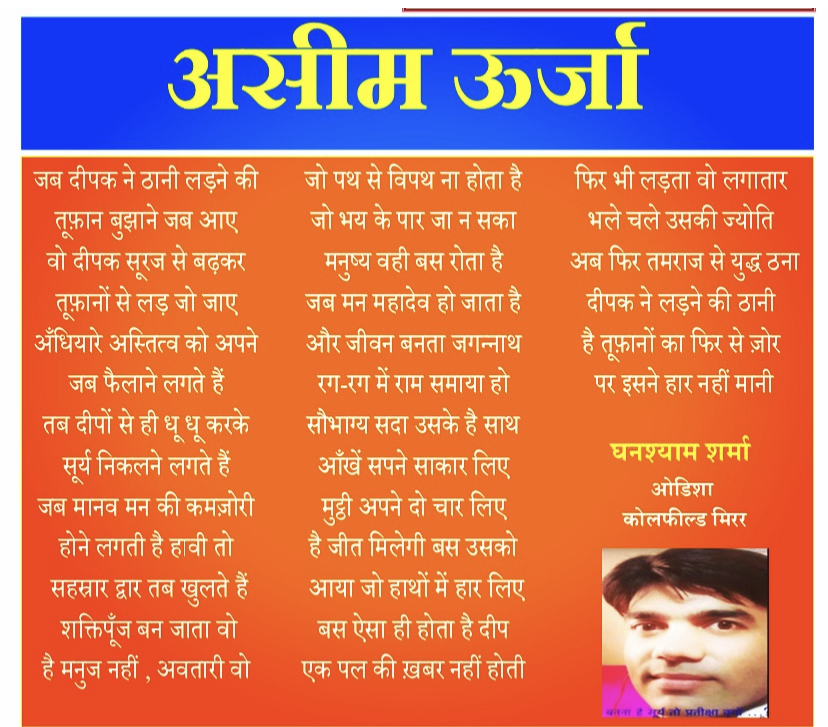 असीम ऊर्जा
जब दीपक ने ठानी लड़ने की
तूफ़ान बुझाने जब आए
वो दीपक सूरज से बढ़कर
तूफ़ानों से लड़ जो जाए
अँधियारे अस्तित्व को अपने
जब फैलाने लगते हैं
तब दीपों से ही धू धू करके
सूर्य निकलने लगते हैं
जब मानव मन की कमज़ोरी
होने लगती है हावी तो
सहस्रार द्वार तब खुलते हैं
शक्तिपूँज बन जाता वो
है मनुज नहीं , अवतारी वो
जो पथ से विपथ ना होता है
जो भय के पार जा न सका
मनुष्य वही बस रोता है
जब मन महादेव हो जाता है
और जीवन बनता जगन्नाथ
रग-रग में राम समाया हो
सौभाग्य सदा उसके है साथ
आँखें सपने साकार लिए
मुट्ठी अपने दो चार लिए
है जीत मिलेगी बस उसको
आया जो हाथों में हार लिए
बस ऐसा ही होता है दीप
एक पल की ख़बर नहीं होती
फिर भी लड़ता वो लगातार
भले चले उसकी ज्योति
अब फिर तमराज से युद्ध ठना
दीपक ने लड़ने की ठानी
है तूफ़ानों का फिर से ज़ोर
पर इसने हार नहीं मानी
घनश्याम शर्मा
ओडिशा
कोलफील्ड मिरर
बनना है सूर्य तो प्रतीक्षा